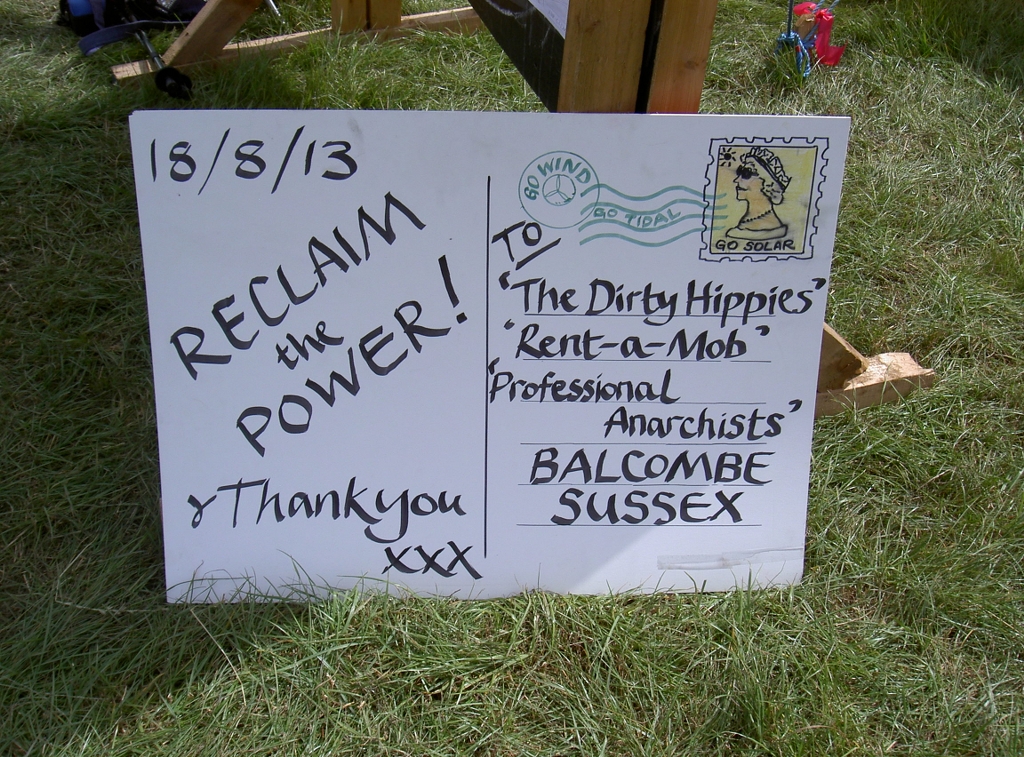 18/8/13
RECLAIM
the
POWER!
& Thank you
xxx
GO WIND!
GO TIDAL
GO SOLAR
TO
"The Dirty Hippies"
"Rent-a-Mob"
"Professional
Anarchists"
BALCOMBE
SUSSEX